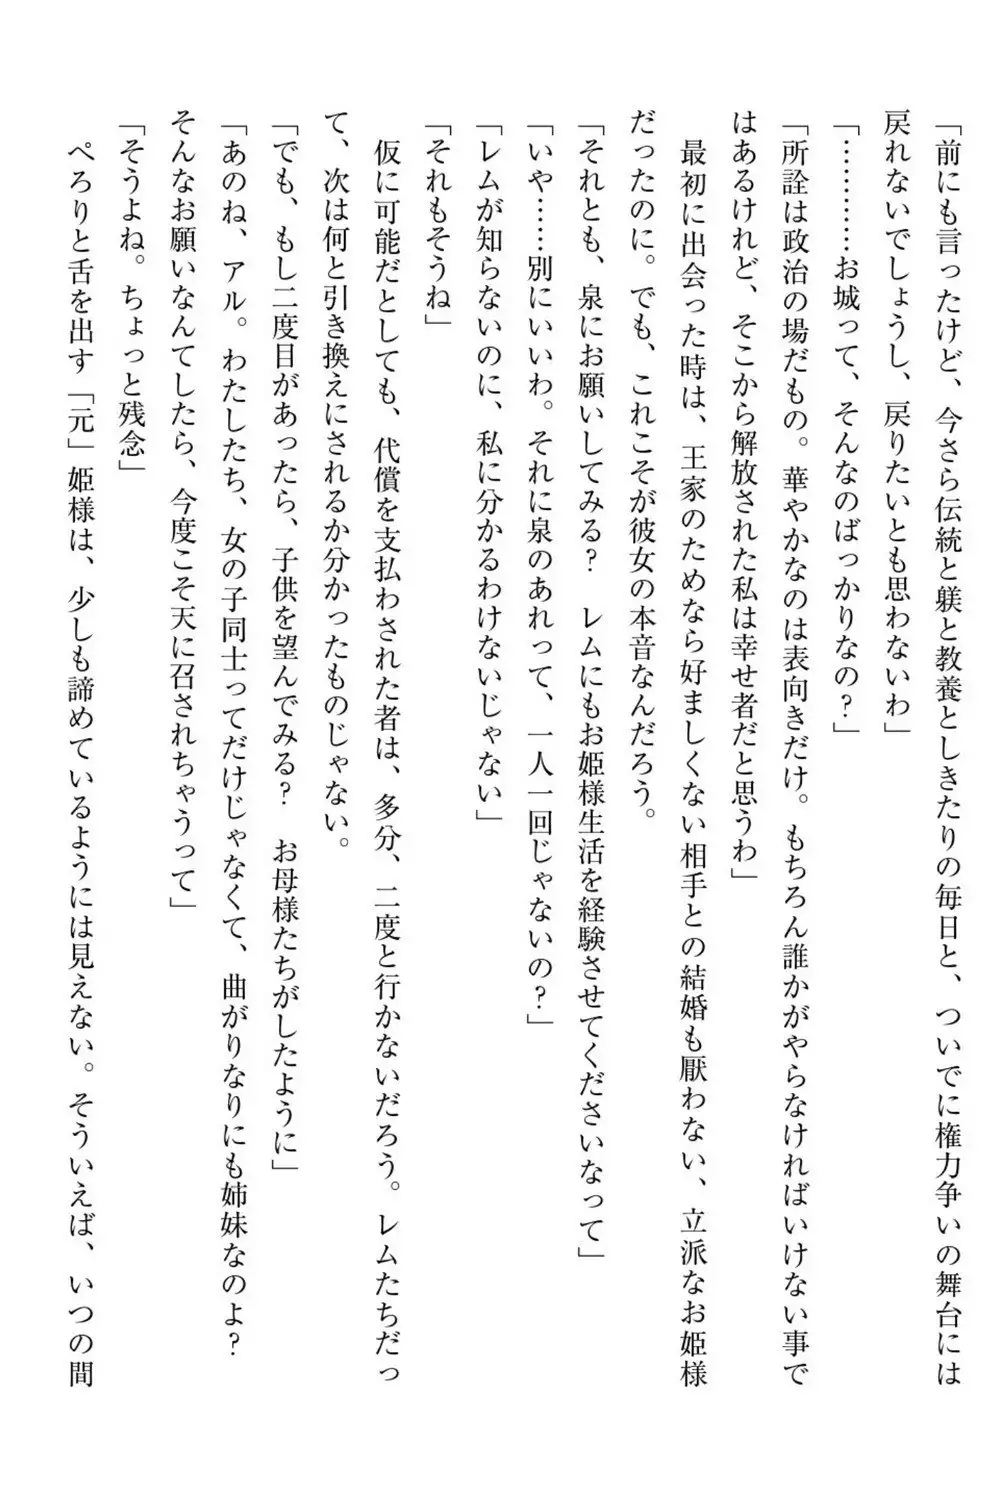 「前にも言ったけど、今さら伝統と躾と教養としきたりの毎日と、ついでに権力争いの舞台には
戻れないでしょうし、戻りたいとも思わないわ」
「…………お城って、そんなのばっかりなの？」
「所詮は政治の場だもの。華やかなのは表向きだけ。もちろん誰かがやらなければいけない事で
はあるけれど、そこから解放された私は幸せ者だと思うわ」
　最初に出会った時は、王家のためなら好ましくない相手との結婚も厭わない、立派なお姫様
だったのに。でも、これこそが彼女の本音なんだろう。
「それとも、泉にお願いしてみる？　レムにもお姫様生活を経験させてくださいなって」
「いや……別にいいわ。それに泉のあれって、一人一回じゃないの？」
「レムが知らないのに、私に分かるわけないじゃない」
「それもそうね」
　仮に可能だとしても、代償を支払わされた者は、多分、二度と行かないだろう。レムたちだっ
て、次は何と引き換えにされるか分かったものじゃない。
「でも、もし二度目があったら、子供を望んでみる？　お母様たちがしたように」
「あのね、アル。わたしたち、女の子同士ってだけじゃなくて、曲がりなりにも姉妹なのよ？
そんなお願いなんてしたら、今度こそ天に召されちゃうって」
「そうよね。ちょっと残念」
　ぺろりと舌を出す「元」姫様は、少しも諦めているようには見えない。そういえば、いつの間